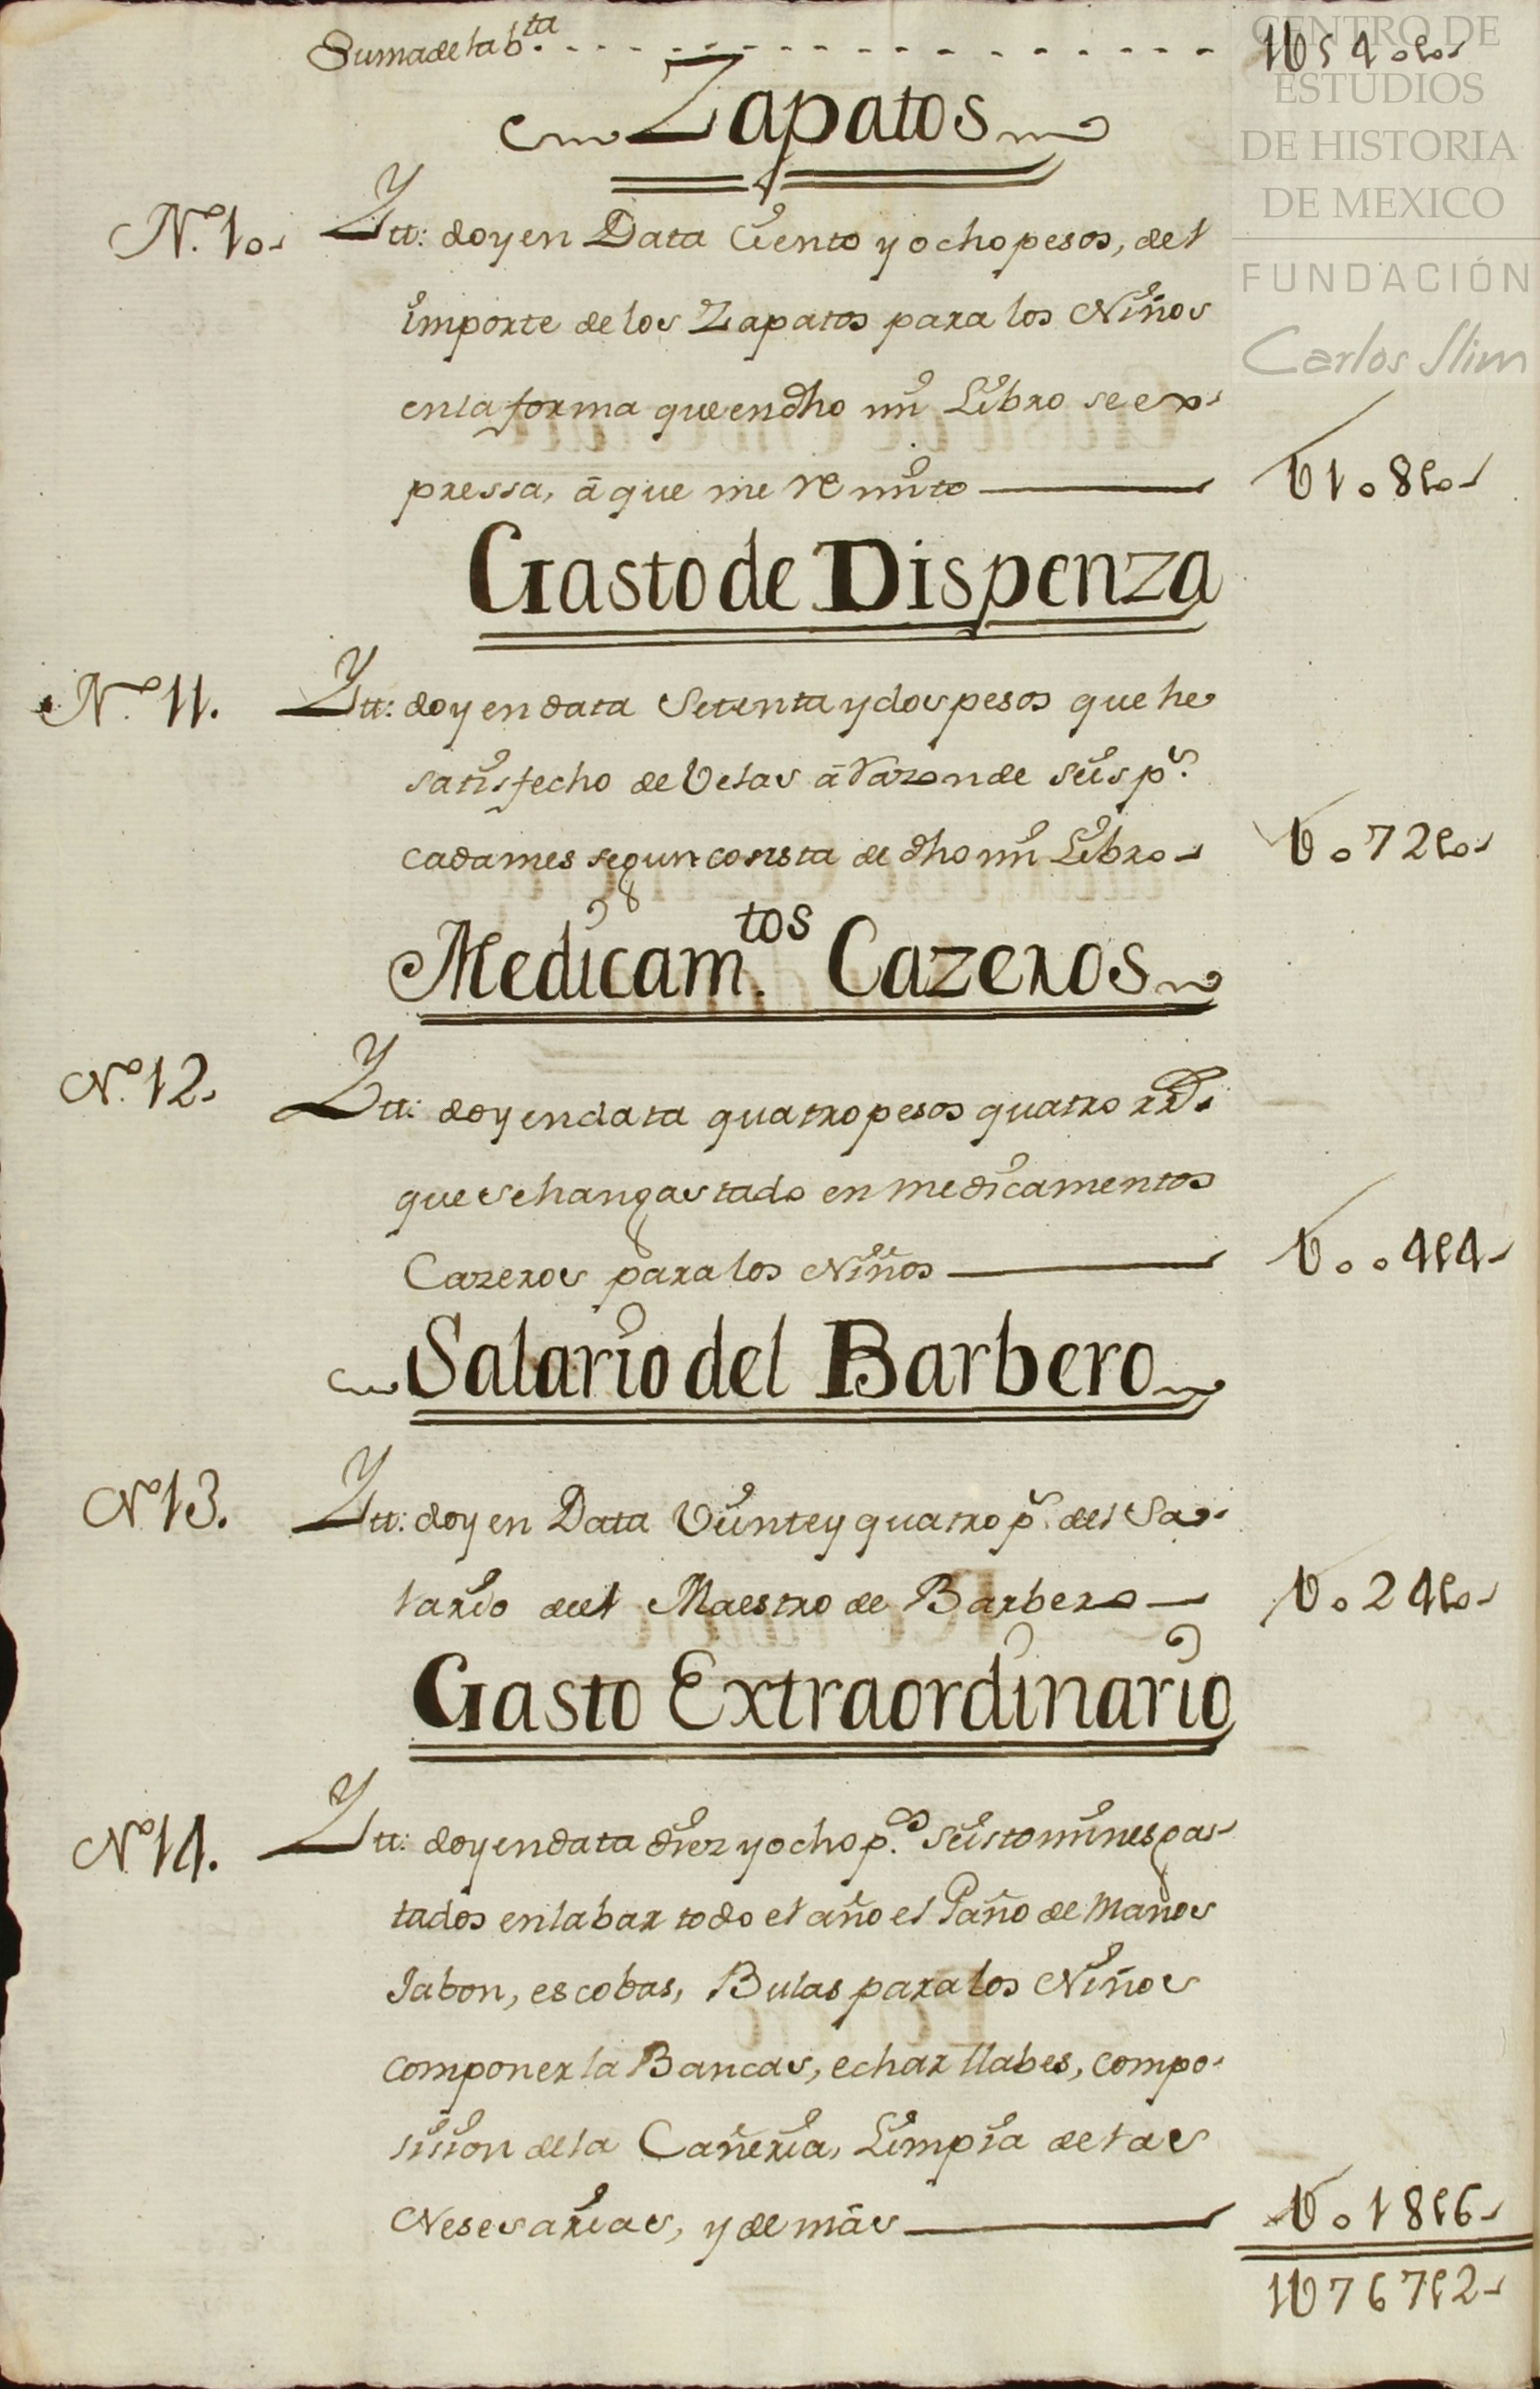 Suma de la b.ta - - - - - - - - - - - - - - - 1U540l0.
CENTRO DE
ESTUDIOS
DE HISTORIA
DE MEXICO
FUNDACIÓN
Carlos Slim
Zapatos
N.º 10. Ytt: doy en Data Ciento y ocho pesos, del
importe de los Zapatos para los Niños
en la forma que en dho mi Libro se ex-
pressa, â que me remito — U108l0.
Gasto de Dispenza
N.º 11. Ytt: doy en data Setenta y dos pesos que he
satisfecho de Velas â razon de seis p.s
cada mes segun consta de dho mi Libro - U072l0.
Medicam.tos Cazeros
N.º 12. Ytt: doy en data quatro pesos quatro rr.s
que se han gastado en medicamentos
Cazeros para los Niños — U004l4.
Salario del Barbero
N.º 13. Ytt: doy en Data Veinte y quatro p.s del Sa-
lario del Maestro de Barbero — U024l0.
Gasto Extraordinario
N.º 14. Ytt: doy en data diez y ocho p.s seis tomines gas-
tados en labar todo el año el Paño de Manos
Jabon, escobas, Bulas para los Niños
componer la Bancas, echar llabes, compo-
sision de la Cañeria, Limpia de las
Nesesarias, y demâs — U018l6.
1U767l2.